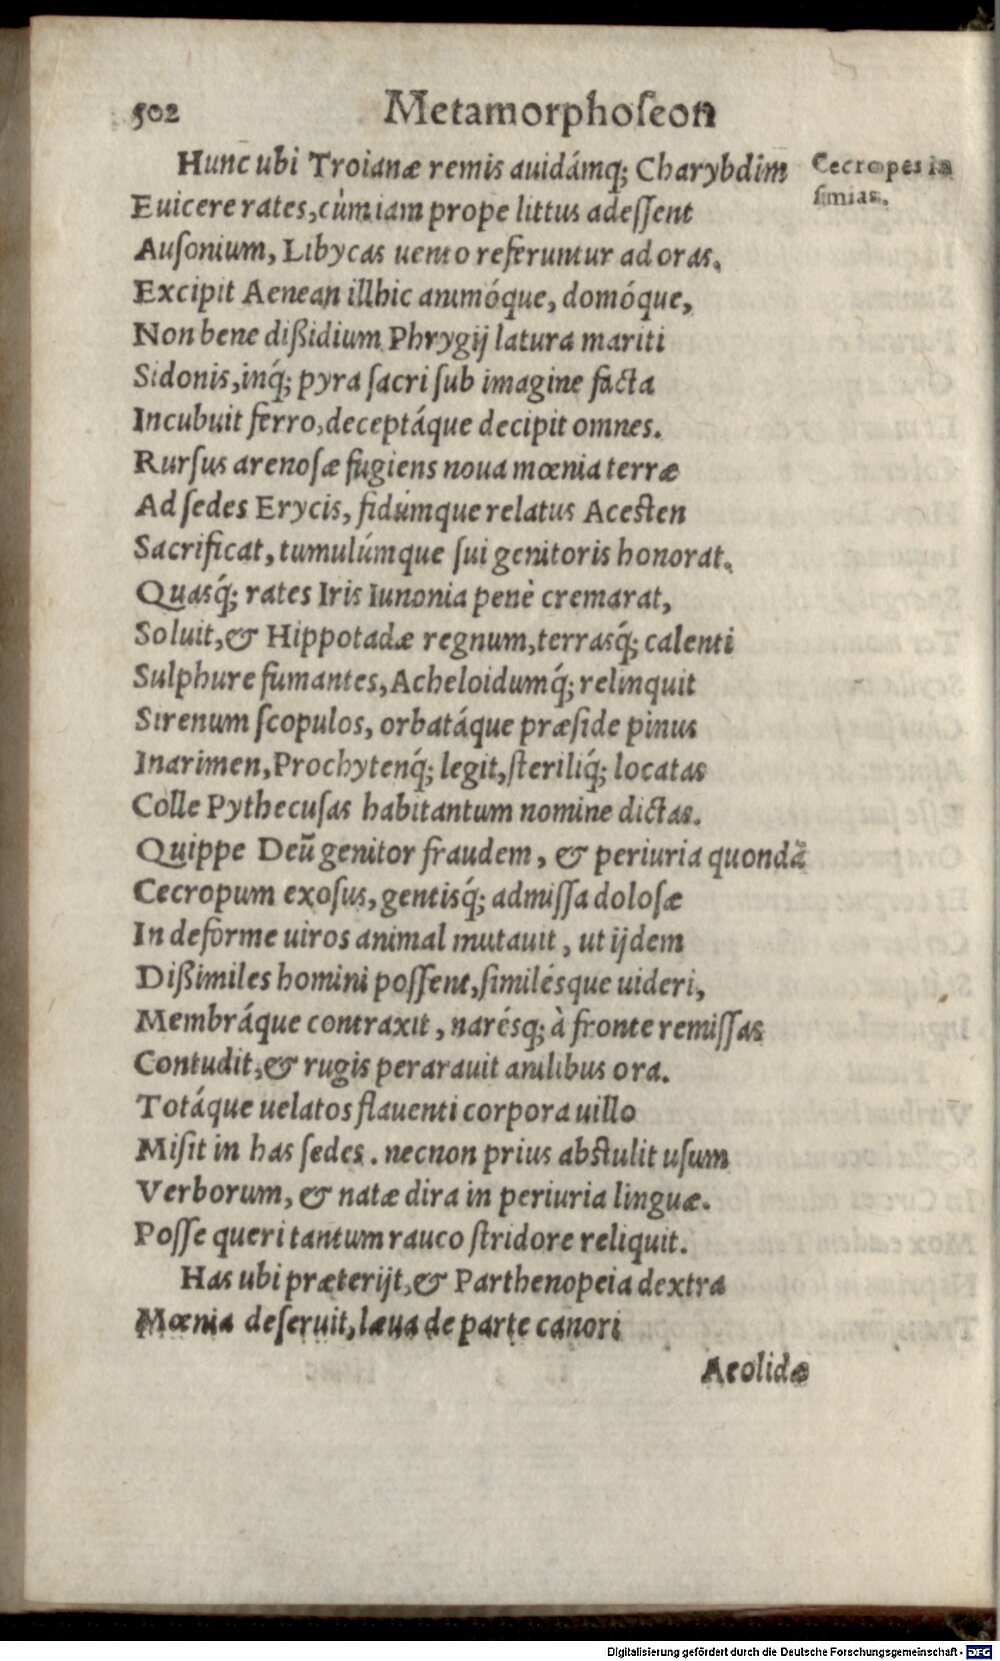 502 Metamorphoſeon
Hunc ubi Troianæ remis auidámq; Charybdim
Cecropes in
ſimias.
Euicere rates, cùm iam prope littus adeſſent
Auſonium, Libycas uento referuntur ad oras.
Excipit Aenean illhic animóque, domóque,
Non bene dißidium Phrygij latura mariti
Sidonis, inq́; pyra ſacri ſub imagine facta
Incubuit ferro, deceptáque decipit omnes.
Rurſus arenoſæ fugiens noua mœnia terræ
Ad ſedes Erycis, fidúmque relatus Aceſten
Sacrificat, tumulúmque ſui genitoris honorat.
Quasq́; rates Iris Iunonia penè cremarat,
Soluit, & Hippotadæ regnum, terrasq́; calenti
Sulphure fumantes, Acheloidumq́; relinquit
Sirenum ſcopulos, orbatáque præſide pinus
Inarimen, Prochytenq́; legit, ſteriliq́; locatas
Colle Pythecuſas habitantum nomine dictas.
Quippe Deũ genitor fraudem, & periuria quondã
Cecropum exoſus, gentisq́; admiſſa doloſæ
In deforme uiros animal mutauit, ut ijdem
Dißimiles homini poſſent, ſimilésque uideri,
Membráque contraxit, narésq; à fronte remiſſas
Contudit, & rugis perarauit anilibus ora.
Totáque uelatos flauenti corpora uillo
Miſit in has ſedes. necnon prius abſtulit uſum
Verborum, & natæ dira in periuria linguæ.
Poſſe queri tantum rauco ſtridore reliquit.
Has ubi præterijt, & Parthenopeia dextra
Mœnia deſeruit, læua de parte canori
Aeolidæ
Digitalisierung gefördert durch die Deutsche Forschungsgemeinschaft - DFG